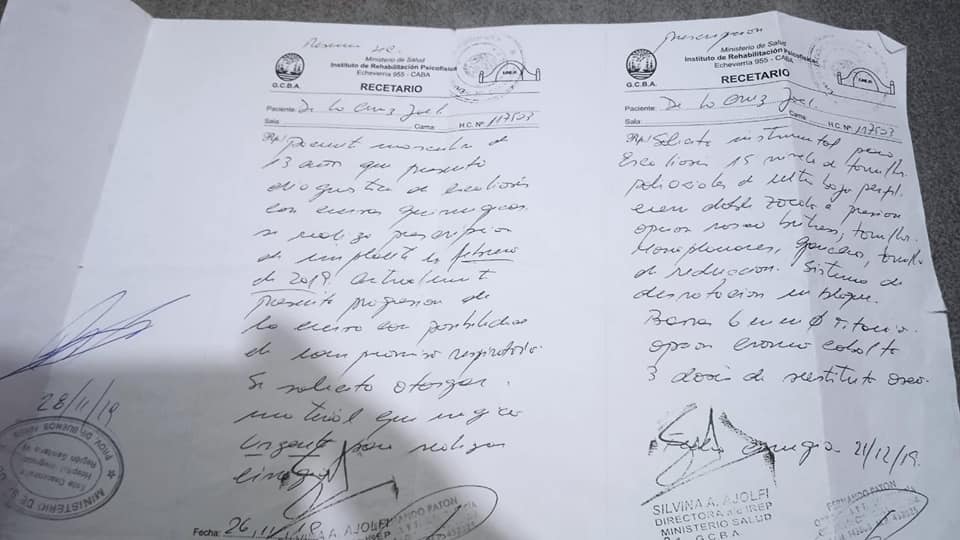 Resumen HC.
Ministerio de Salud
Instituto de Rehabilitación Psicofísica
Echeverría 955 - CABA
G.C.B.A.
RECETARIO
Paciente: De La Cruz Joel
Sala: Cama: H.C. Nº 117523
Rp/ Paciente masculino de
13 años que presenta
diagnostico de escoliosis
con curvas quirurgicas.
se realizo prescripcion
de implante en febrero
de 2019. Actualmente
presenta progresion de
la curva con posibilidad
de compromiso respiratorio.
Se solicita otorgar
material quirurgico
urgente para realizar
cirugia
Fecha: 26/11/19
A. AJOLFI
IREP
FERNANDO PATON
28/11/19
MINISTERIO DE
PROV. DE BUENOS AIRES
Región Sanitaria
Prescripcion
Ministerio de Salud
Instituto de Rehabilitación Psicofísica
Echeverría 955 - CABA
G.C.B.A.
RECETARIO
Paciente: De La Cruz Joel.
Sala: Cama: H.C. Nº 117523
Rp/ Solicito instrumental para
Escoliosis 15 niveles de tornillos
poliaxiales de ultra bajo perfil
doble rosca a presion
opcion rosca tornillos
Monoplanares, ganchos, tornillos
de reduccion. Sistema de
desrotacion en bloque.
Barras 6 mm Ø Titanio
opcion cromo cobalto
3 dosis de sustituto oseo.
Fecha Cirugia 21/12/19.
SILVINA A. AJOLFI
DIRECTORA a/c IREP
MINISTERIO SALUD
G.C.B.A.
FERNANDO PATON